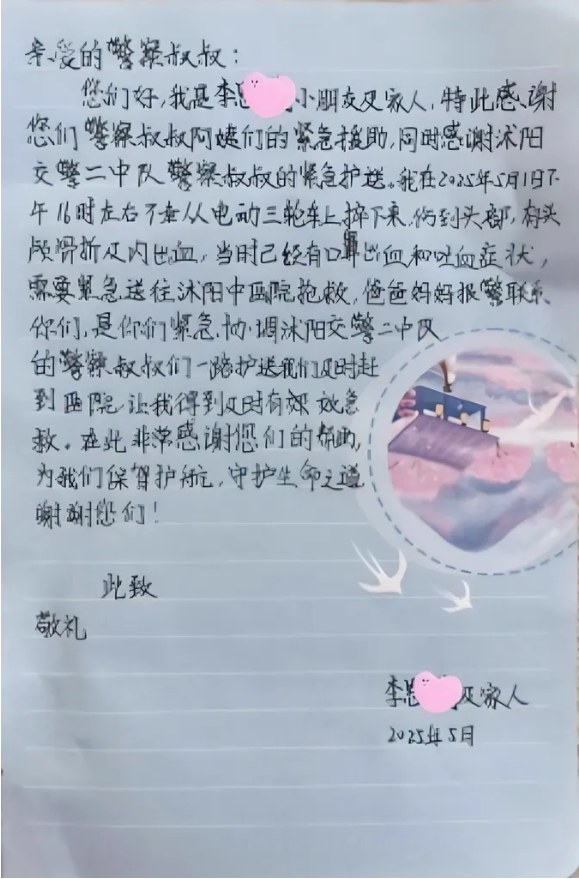 亲爱的警察叔叔：
您们好，我是李思小朋友及家人，特此感谢
您们警察叔叔阿姨们的紧急援助，同时感谢沭阳
交警二中队警察叔叔的紧急护送。我在2025年5月1日下
午16时左右不幸从电动三轮车上摔下来，伤到头部，有头
颅骨折及内出血，当时已经有口鼻出血和吐血症状，
需要紧急送往沭阳中医院抢救，爸爸妈妈报警联系
你们，是你们紧急协调沭阳交警二中队
的警察叔叔们一路护送我们及时赶
到医院，让我得到及时有效急
救。在此非常感谢您们的帮助，
为我们保驾护航，守护生命之道
谢谢您们！
此致
敬礼
李思及家人
2025年5月